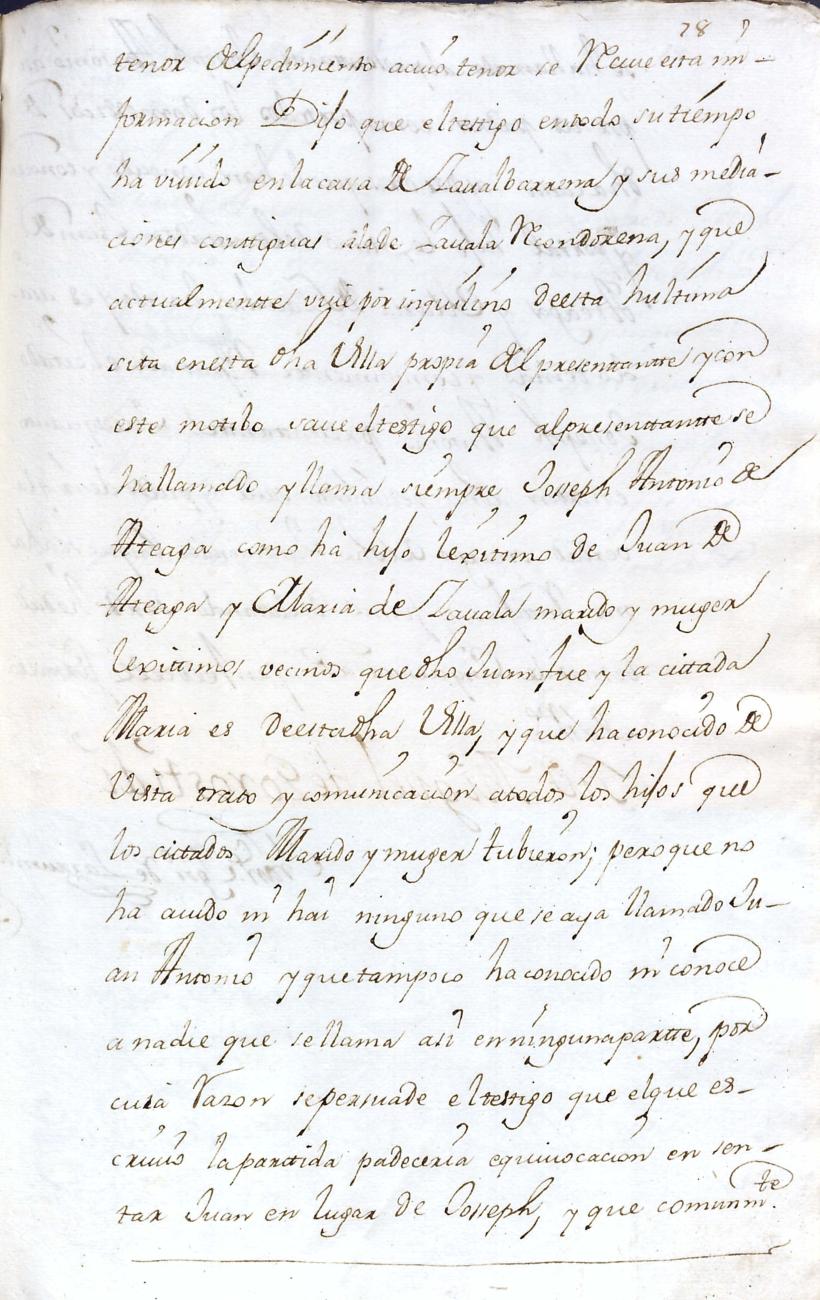 28
tenor del pedimiento acuio tenor se Reciue esta in-
formacion Dijo que el testigo entodo su tiempo
ha viuido enlacasa de Zaualbarrena y sus media-
ciones conttiguas alade Zauala Recondorena, y que
actualmentte viue por inquilino deesta hultima
sita enesta dha Villa propia del presenttantte y con
este motibo saue el testigo que al presenttantte se
hallamado y llama siempre Josseph Antonio de
Atteaga como há hijo lexitimo de Juan de
Atteaga y Maria de Zauala marido y muger
lexittimos vecinos que dho Juan fue y la cittada
Maria es deestadha Villa, y que ha conocido de
Vista trato y comunicacion atodos los hijos que
los cittados Marido y muger tubieron; pero que no
ha auido ni hai ninguno que se aya llamado Ju-
an Antonio y que tampoco ha conocido ni conoce
a nadie que se llama asi en ninguna partte, por
cuia Razon se persuade el testigo que el que es-
criuio la parttida padeceria equiuocacion en sen-
tar Juan en lugar de Josseph, y que comunmte.